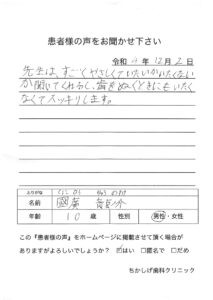 患者様の声をお聞かせ下さい
令和 4 年 12 月 2 日
先生は、すごくやさしくていたいかいたくない
か聞いてくれるし、歯をぬくときにもいたく
なくてスッキリします。
ふりがな
名前
年齢 10 歳 性別 男性・女性
この『患者様の声』をホームページに掲載させて頂く場合が
ありますがよろしいでしょうか? ☑はい □匿名で □だめ
ちかしげ歯科クリニック